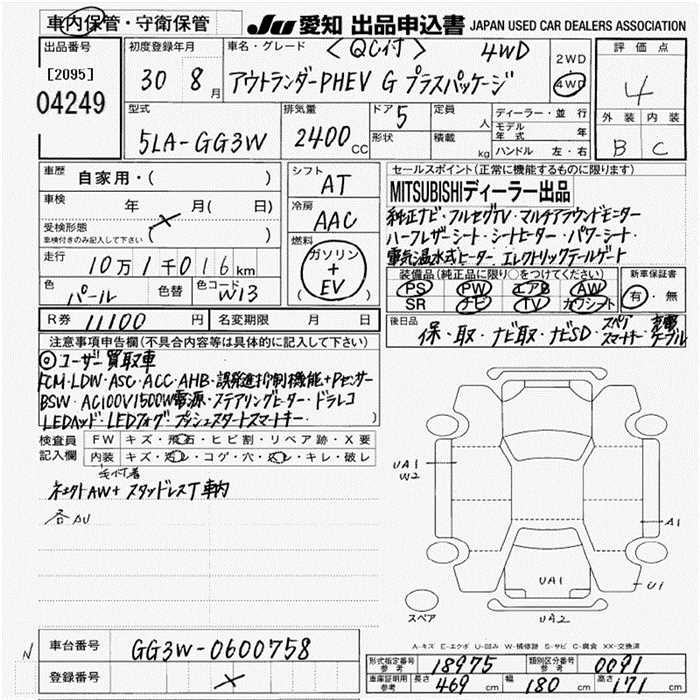 車内保管・守衛保管
JU 愛知 出品申込書 JAPAN USED CAR DEALERS ASSOCIATION
出品番号
[2095]
04249
初度登録年月
30 8月
車名・グレード 〈QC付〉 4WD
アウトランダーPHEV G プラスパッケージ
2WD
4WD
評価点
4
外装 内装
B C
型式
5LA-GG3W
排気量
2400cc
ドア 5
形状
定員 人
積載 kg
ディーラー・並行
モデル年式 年
ハンドル 左・右
車歴
自家用・( )
車検 年 月( 日)
受検形態
車検付きのみ記入して下さい
( )
走行
10万1千016km
色
パール
色替
色コード
W13
シフト
AT
冷房
AAC
燃料
ガソリン
+
EV
セールスポイント(正常に機能するものに限ります)
MITSUBISHIディーラー出品
純正ナビ・フルセグTV・マルチアラウンドモニター
ハーフレザーシート・シートヒーター・パワーシート・
電気温水式ヒーター・エレクトリックテールゲート
装備品(純正品に限り○をつけてください)
PS PW エアB AW
SR ナビ TV カワシート
新車保証書
有・無
R券 11100円
名変期限 月 日
後日品
保・取・ナビ取・ナビSD・スペアスマートキー・充電ケーブル
注意事項申告欄(不具合内容等は具体的に記入して下さい)
◎ユーザー買取車
FCM・LDW・ASC・ACC・AHB・誤発進抑制機能+Pセンサー
BSW・AC100V1500W電源・ステアリングヒーター・ドラレコ
LEDヘッド・LEDフォグ・プッシュスタートスマートキー・
検査員
記入欄
FW キズ・飛石・ヒビ割・リペア跡・X要
内装 キズ・汚レ・コゲ・穴・スレ・キレ・破レ
毛付着
AW+スタッドレスT車内
各AU
UA1
W2
A1
UA1
U1
UA2
スペア
A-キズ E-エクボ U-凹み W-補修跡 S-サビ C-腐食 XX-交換済
N
車台番号 GG3W-0600758
登録番号
形式指定番号
参考
18975
類別区分番号
参考
0091
車庫証明用
参考
長さ 469cm 幅 180cm 高さ 171cm